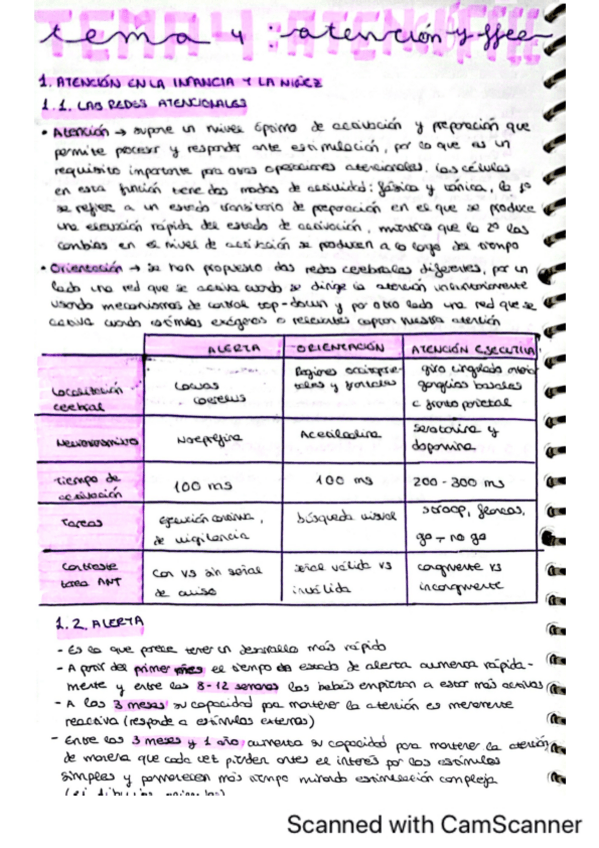 tema 4: atención y ffee
1. ATENCIÓN EN LA INFANCIA Y LA NIÑEZ
1.1. LAS REDES ATENCIONALES
• Atención → supone un nivel óptimo de activación y preparación que
permite procesar y responder ante estimulación, por lo que es un
requisito importante para otras operaciones atencionales. Las células
en esta función tiene dos modos de actividad: fásica y tónica, la 1º
se refiere a un estado transitorio de preparación en el que se produce
una elevación rápida del estado de activación, mientras que la 2º las
cambios en el nivel de activación se producen a lo largo del tiempo
• Orientación → se han propuesto dos redes cerebrales diferentes, por un
lado una red que se activa cuando se dirige la atención voluntariamente
usando mecanismos de control top-down y por otro lado una red que se
activa cuando estímulos exógenos o relevantes captan nuestra atención
ALERTA ORIENTACIÓN ATENCIÓN EJECUTIVA
Localización cerebral
Locus coeruleus
Regiones
parietales y frontales
giro cingulado
ganglios basales
fronto parietal
Acetilcolina
serotonina y dopamina
tiempo de activación
100 ms
100 ms
200 - 300 ms
Tareas
ejecución continua, de vigilancia
búsqueda visual
stroop, flancos, go - no go
Contraste tarea ANT
con vs sin señal de aviso
señal válida vs inválida
congruente vs incongruente
1.2. ALERTA
- Es lo que parece tener un desarrollo más rápido
- A partir del primer mes el tiempo de estado de alerta aumenta rápida-
mente y entre las 8-12 semanas los bebés empiezan a estar más activos
- A los 3 meses su capacidad para mantener la atención es meramente
reactiva (responde a estímulos externos)
- Entre los 3 meses y 1 año aumenta su capacidad para mantener la atención
de manera que cada vez pierden antes el interés por los estímulos
simples y permanecen más tiempo mirando estimulación compleja
Scanned with CamScanner